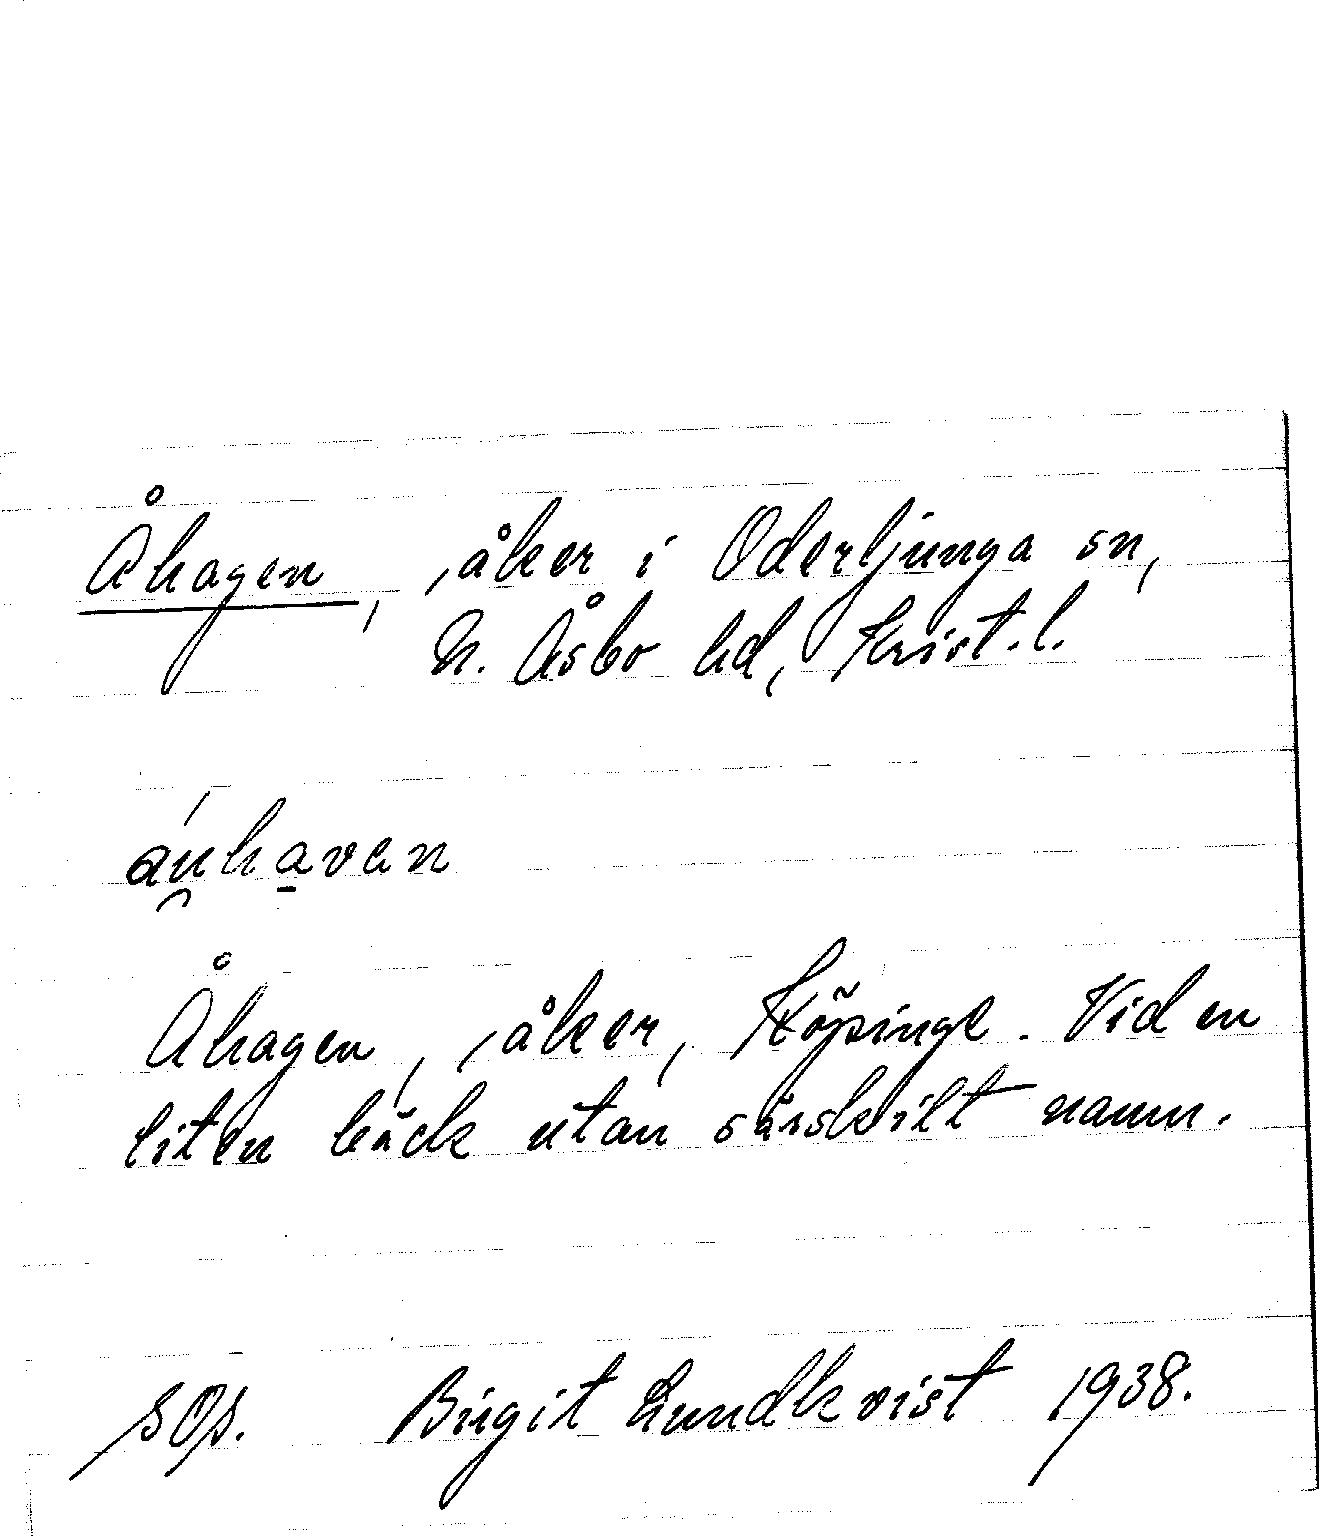 Åhagen, åker i Oderljunga sn,
N. Åsbo hd, Krist. l.
áu̯ha̠vən
Åhagen, åker, Köpinge. Vid en
liten bäck utan särskilt namn.
Birgit Lundkvist 1938.